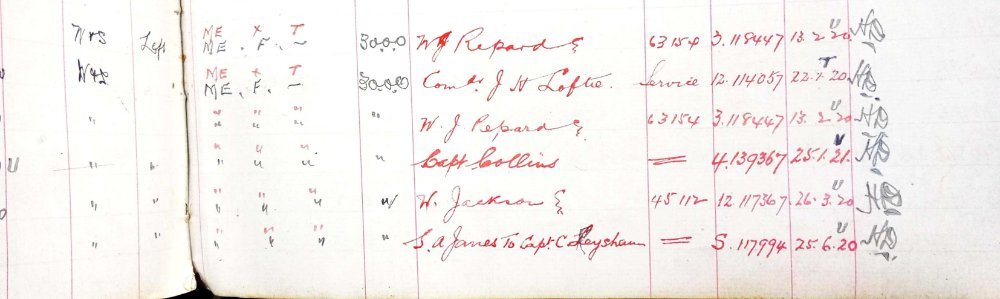 ME X T
N&S Left ME. F. — 30.0.0 W J Repard & 63154 3.118447 13.2.20 HD
ME X T
W&L ME. F. — 30.0.0 Comdr J H Loftie. Service 12.114057 22.1.20 HD
" " " " " W. J. Repard & 63154 3.118447 13.2.20 HD
" " " " " " Capt Collins = 4.139367 25.1.21. HD
" " " " " W. Jackson & 45112 12.117367 26.3.20 HD
" " " " " " S. A James To Capt. C = S.117994 25.6.20 HD